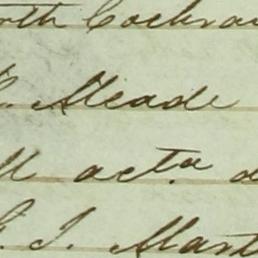 rth Cochran
. Meade
M acta
. J. Mart